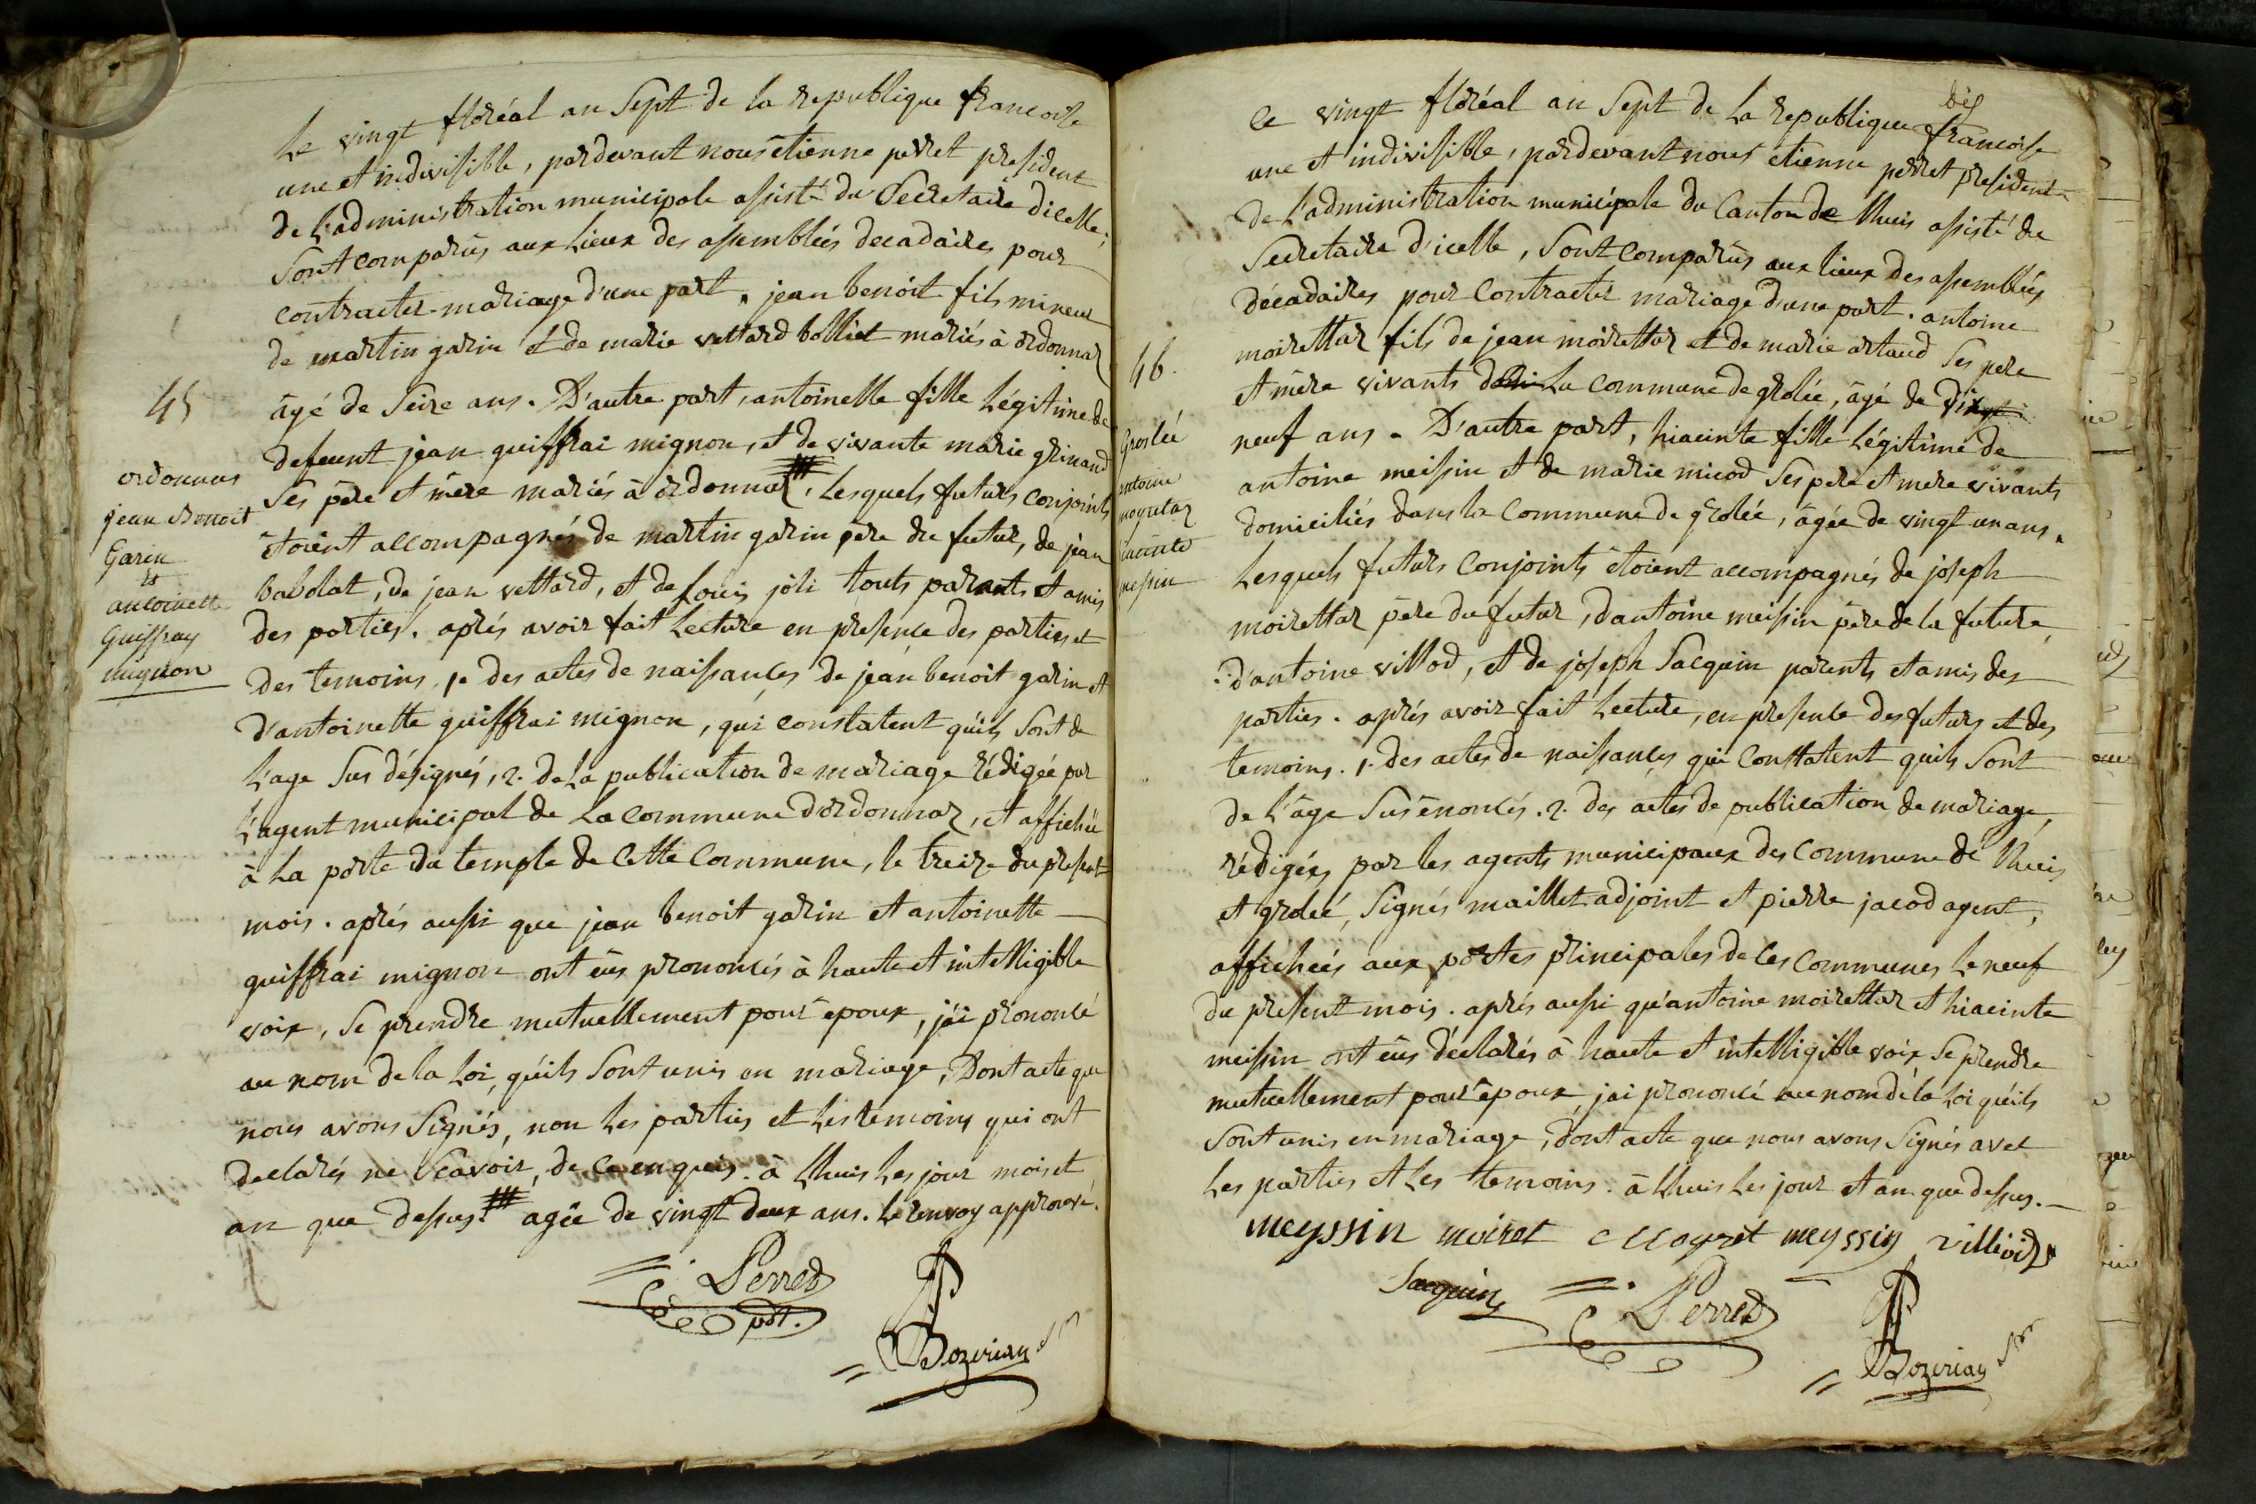 Le vingt floréal an Sept de la republique francoise
une et indivisible, pardevant nous étienne perret president
de l'administration municipale assisté du Secretaire dicelle,
Sont comparus aux Lieux des assemblées decadaires pour
contracter mariage d'une part, jean benoit fils mineur
de martin garin et de marie vettard bolliet mariés à ordonnaz
âgé de Seize ans. D'autre part, antoinette fille Légitime de
defeunt jean guiffrai mignon, et de vivante marie grinand
Ses père et mère mariés à ordonnaz, Lesquels futurs conjoints
étoient accompagnés de martin garin père du futur, de jean
babolat, de jean vettard, et de Louis joli touts parents et amis
des parties. aprés avoir fait Lecture en presence des parties et
des temoins, 1. des actes de naissances de jean benoit garin et
d'antoinette guiffrai mignon, qui constatent qu'ils Sont de
L'age Sus désignés, 2. de La publication de mariage rédigée par
L'agent municipal de La commune d'ordonnaz, et affichée
à La porte du temple de Cette Commune, le treize du present
mois. aprés aussi que jean benoit garin et antoinette
guiffrai mignon ont eûs prononcés à haute et intelligible
voix, Se prendre mutuellement pour époux, j'ai prononcé
au nom de la Loi, qu'ils Sont unis en mariage, Dont acte que
nous avons Signés, non Les parties et Les temoins qui ont
declarés ne Scavoir, de ce enquis. à Lhuis Les jour mois et
an que dessus. agée de vingt deux ans. Le renvoy approuvé.
Perret
pdt.
Bozerian
45
ordonnas
jean Benoit
Garin
et
antoinette
Guiffray
mignon
bis
Le vingt floréal an Sept de La republique francoise
une et indivisible, pardevant nous étienne perret president
de L'administration municipale du Canton de Lhuis assisté du
Secretaire d'icelle, Sont comparûs aux lieux des assemblées
décadaires pour Contracter mariage d'une part. antoine
moirettaz fils de jean moirettaz et de marie artaud Ses pere
et mère vivants La commune de grolée, âgé de
neuf ans. D'autre part, hiacinte fille Légitime de
antoine meissin et de marie micod Ses pere et mere vivants
domiciliés dans la Commune de grolée, âgée de vingt un ans.
Lesquels futurs Conjoints étoient accompagnés de joseph
moirettaz père du futur, d'antoine meissin père de la future,
d'antoine villod, et de joseph Sacquin parents et amis des
parties. aprés avoir fait Lecture, en presence des futurs et des
temoins. 1. des actes de naissances qui Constatent qu'ils Sont
de L'âge Sus énoncés. 2. des actes de publication de mariage,
rédigées par les agents municipaux des Commune de Lhuis
et grolée, Signés maillet adjoint et pierre jacod agent,
affichées aux portes principales de Ces Communes Le neuf
du present mois. aprés aussi qu'antoine moirettaz et hiacinte
meissin ont eûs déclarés à haute et intelligible voix Se prendre
mutuellement pour époux, j'ai prononcé au nom de la Loi qu'ils
Sont unis en mariage, dont acte que nous avons Signés avec
Les parties et Les temoins. à Lhuis Les jour et an que dessus.
meyssin moiret Moyret meyssin
Sacquin
Perret
Bozerian
46.
Groslée
antoine
moyretaz
hiacinte
messin